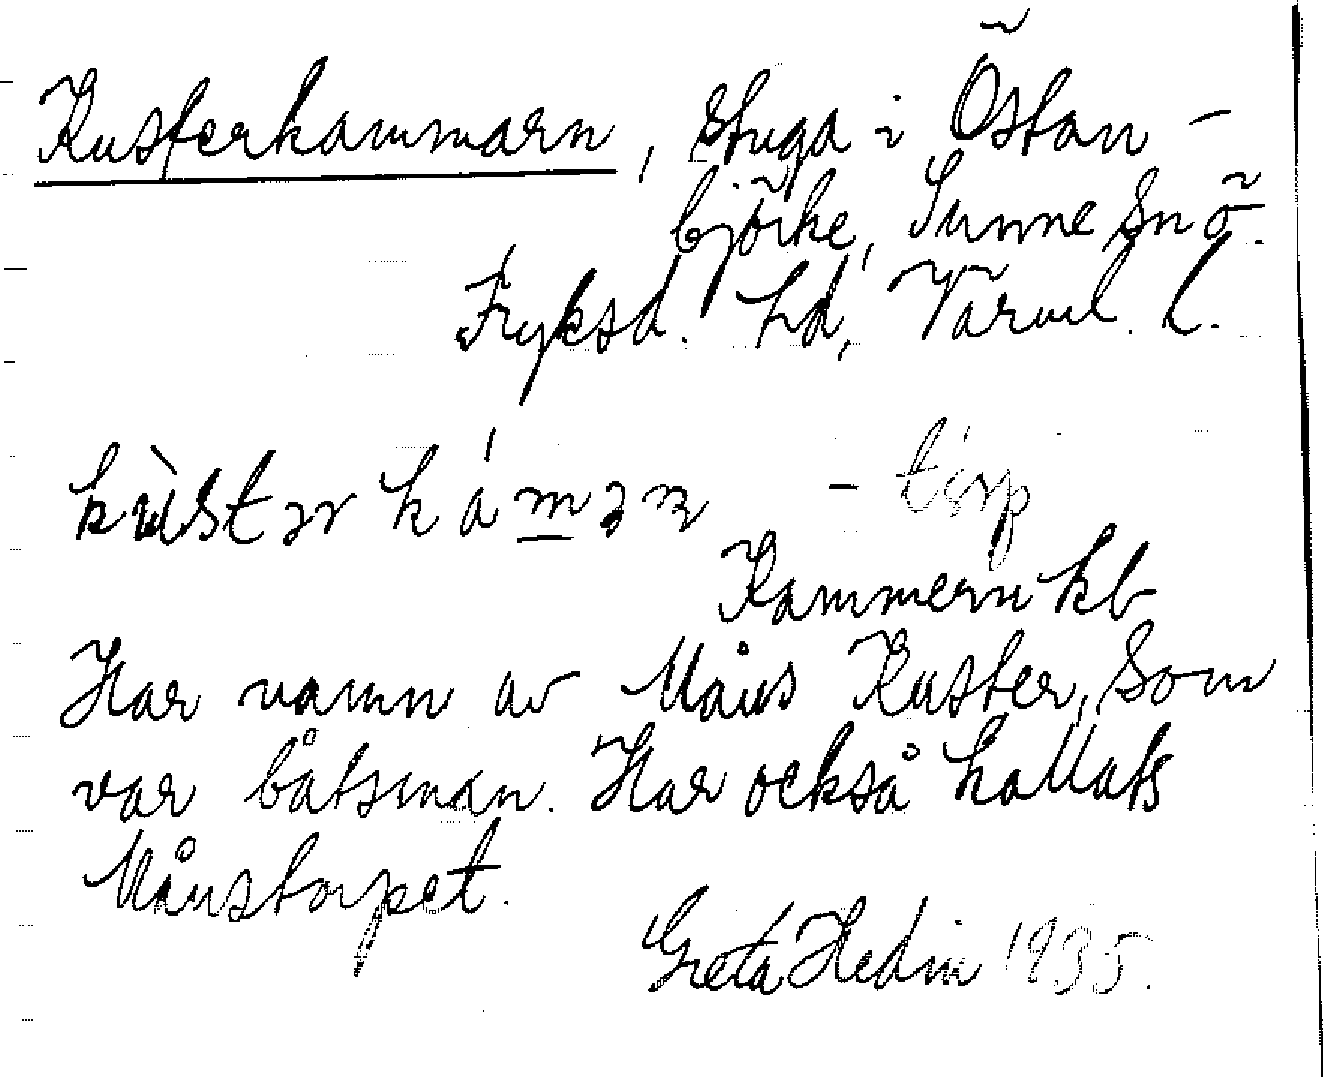 Kusterkammarn, stuga i Östan-
björke, Sunne sn ö.
Fryksd. hd, Värml. l.
kùstər ká m ə n - torp
Kammern kb
Har namn av Måns Kuster, som
var båtsman. Har också kallats
Månstorpet.
Greta Hedin 1935.